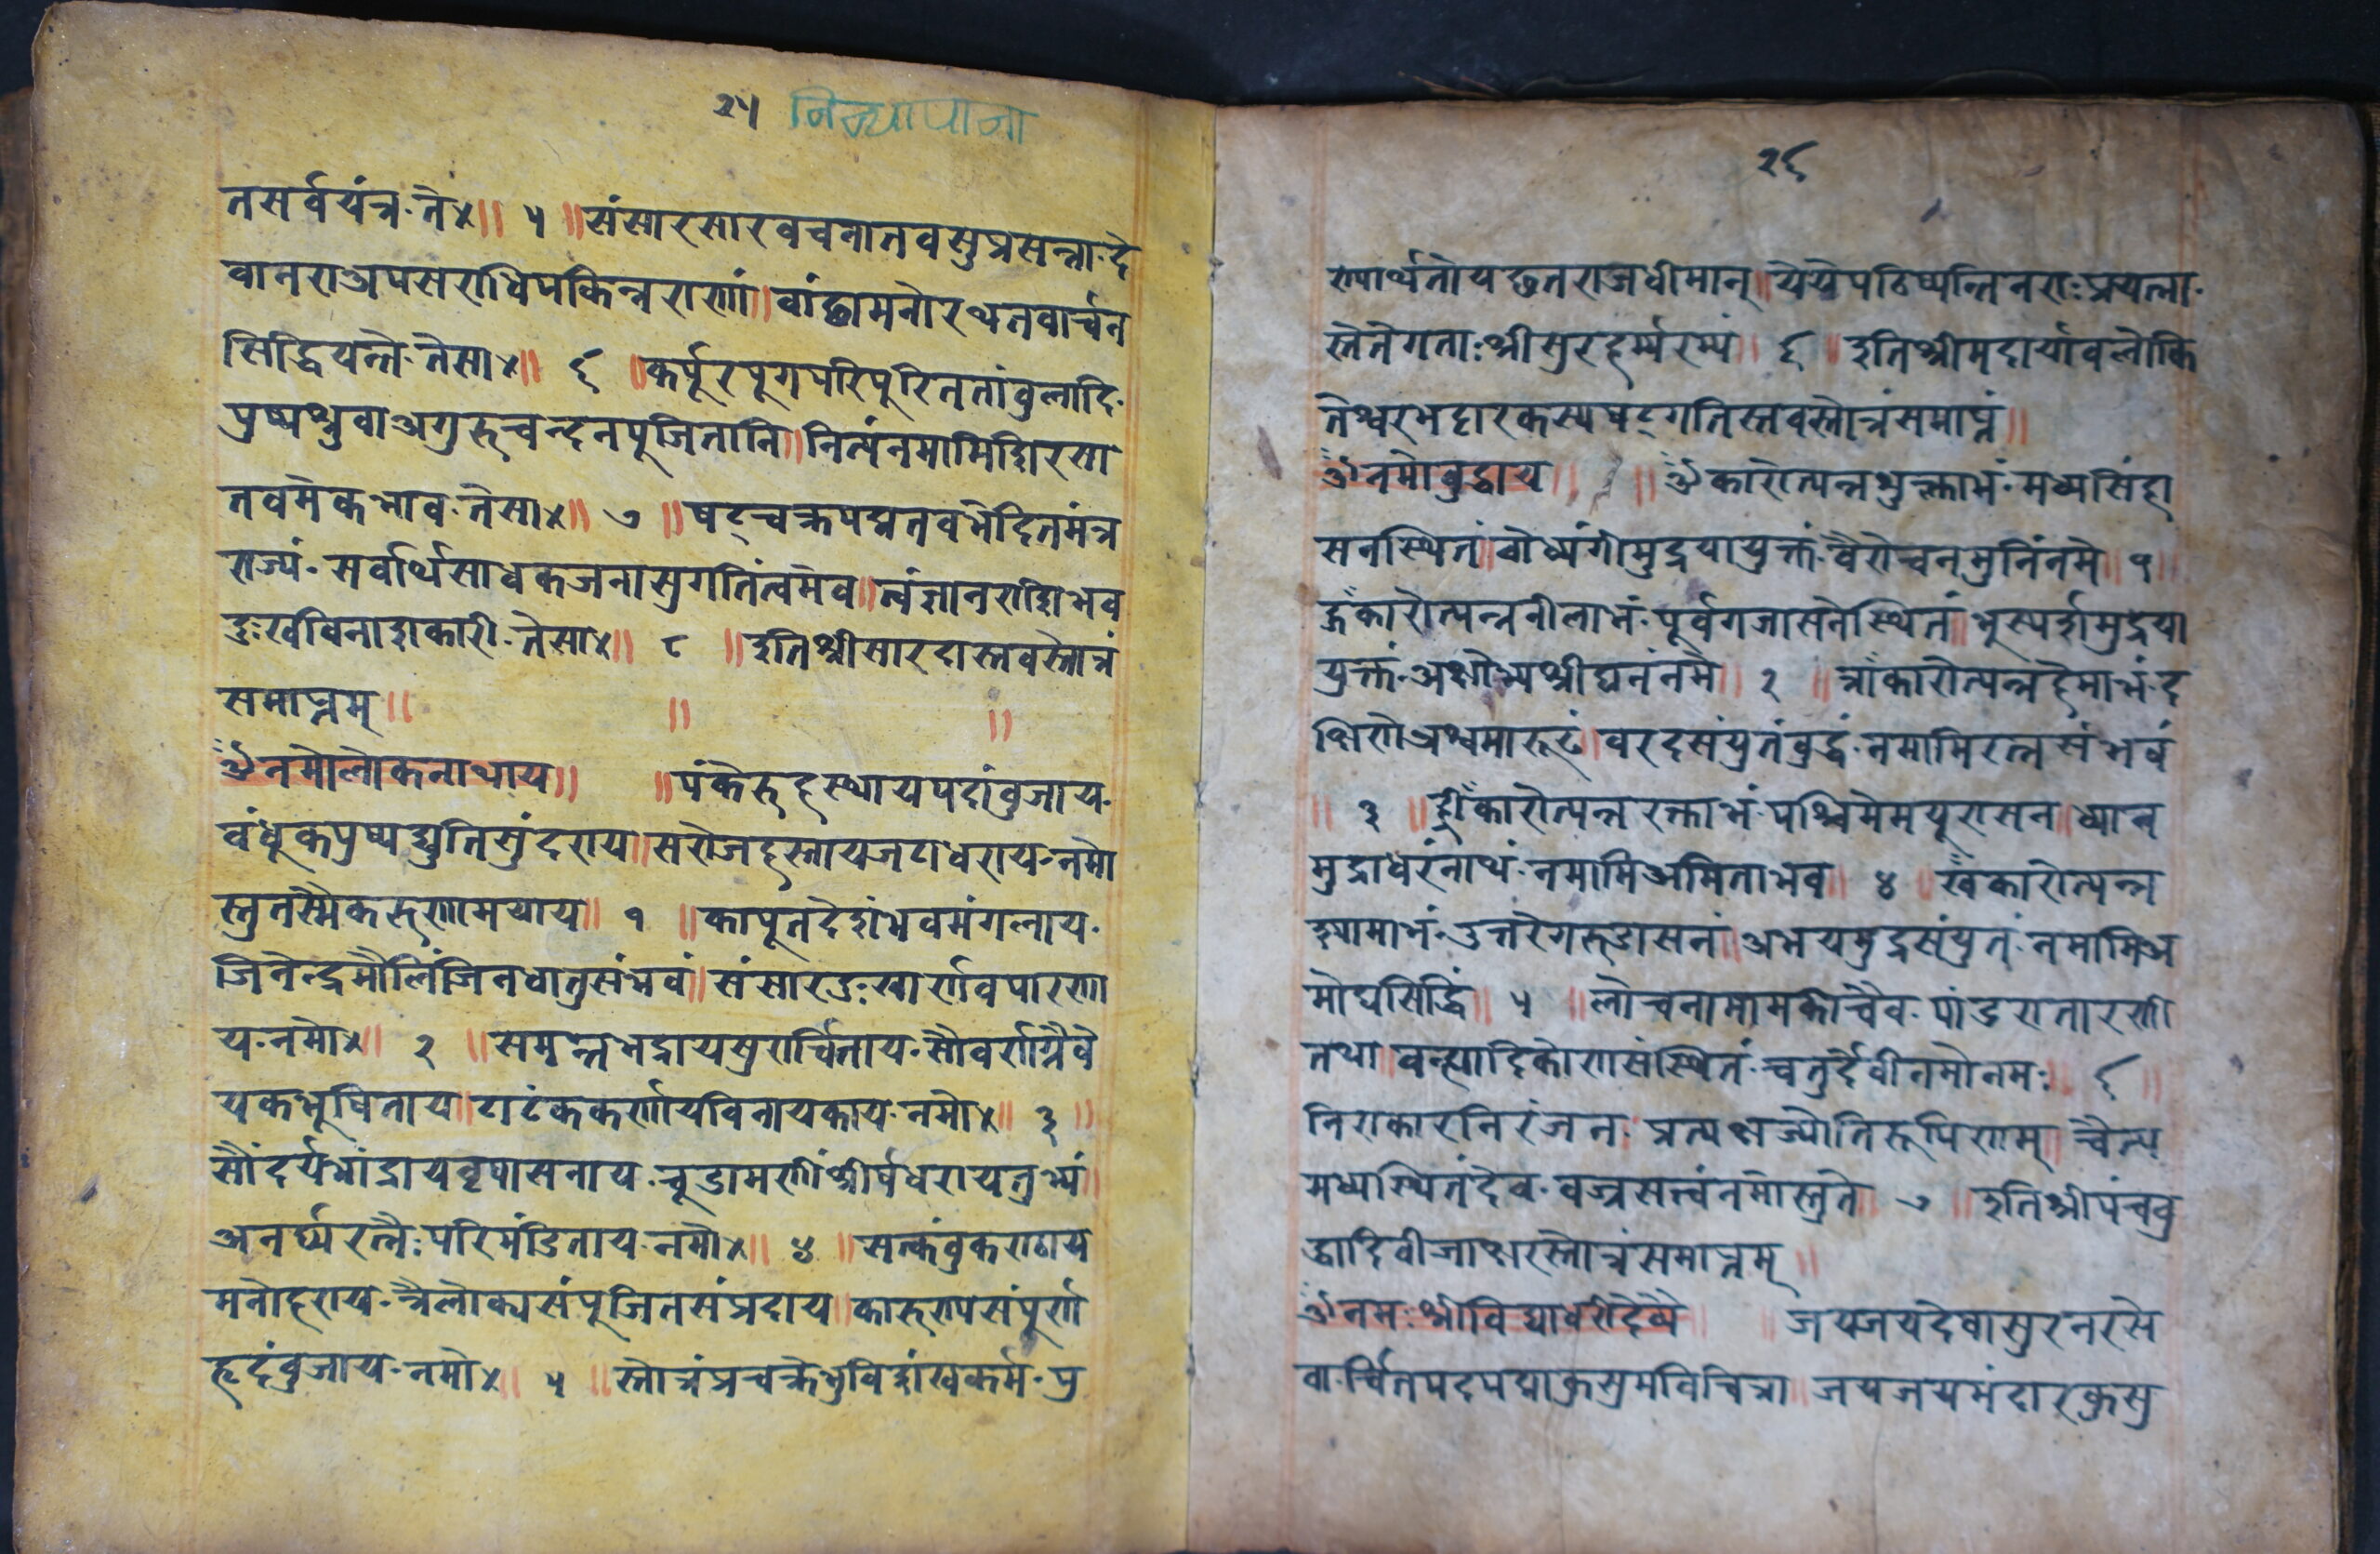 २५
तसर्वयंत्र॰ते४॥ ५ ॥संसारसारवचनातवसुप्रसन्ना॰दे
वानराअपसराधिपकिन्नराणां॥वांछामनोरथतवार्चन
सिद्धियन्ते॰तेसा४॥ ६ ॥कर्पूरपूगपरिपुरिततांवुलादि॰
पुष्पध्रुवाअगुरुचन्दनपूजितानि॥नित्यंनमामि
तवमेकभाव॰तेसा४॥ ७ ॥षट्चक्रपद्मतवभेदितमंत्र
राज्यं॰सर्वार्थसाधकजनासुगतिंत्वमेव॥त्वंज्ञानराशिभव
दुःखविनाशकारी॰तेसा४॥ ८ ॥इतिश्रीसारदास्तवस्तोत्रं
समाप्तम्॥ ॥ ॥
ॐनमोलोकनाथाय॥ ॥पंकेरुहस्थायपदांवुजाय॰
वंधूकपुष्पद्युतिसुंदराय॥सरोजहस्तायजटाधराय॰नमो
स्तुतस्मैकरुणामयाय॥ १ ॥कापूतदेशंभवमंगलाय॰
जिनेन्द्रमौलिंजिनधातुसंभवं॥संसारदुःखार्णवपारणा
य॰नमो४॥ २ ॥समन्तभद्रायसुरार्चिताय॰सौवर्णग्रैवे
यकभूषिताय॥टाटंककर्णायविनायकाय॰नमो४॥ ३ ॥
सौंदर्यसांद्रायवृषासनाय॰चूडामणींशीर्षधरायतुभ्यं॥
अनर्घ्यरत्नैःपरिमंडिताय॰नमो४॥ ४ ॥सत्कंवुकण्ठाय
मनोहराय॰त्रैलोक्यसंपूजितसंप्रदाय॥कारुण्यसंपुर्ण
हृदंवुजाय॰नमो४॥ ५ ॥स्तोत्रंप्रचक्रेभुविशंखकर्म॰पु
२६
रुषार्थतोयछतराजधीमान्॥येयेपठिष्यन्तिनराःप्रयत्ना॰
स्तेतेगताःश्रीसुरहर्म्यरम्यं॥ ६ ॥इतिश्रीमदार्यावलोकि
तेश्वरभट्टारकस्यषट्गतिस्तवस्तोत्रंसमाप्तं॥
ॐनमोवुद्धाय॥ ॥ॐकारोत्पन्नशुक्लाभं॰मध्यसिंहा
सनस्थितं॥वोध्यंगीमुद्रयायुक्तं॰वैरोचनमुनिंनमे॥ १ ॥
हूँकारोत्पन्ननीलाभं॰पूर्वगजासनेस्थितं॥भुस्पर्शमुद्रया
युक्तं॰अक्षोभ्यश्रीघनंनमे॥ २ ॥त्राँकारोत्पन्नहेमाभं॰द
क्षिणेअश्वमारूढं॥वरदसंयुतंवुद्धं॰नमामिरत्नसंभवं
॥ ३ ॥ह्रीँकारोत्पन्नरक्ताभं॰पश्चिमेमयूरासन॥ध्यान
मुद्राधरंनाथं॰नमामिअमिताभव॥ ४ ॥खँकारोत्पन्न
श्यामाभं॰उत्तरेगरुडासनं॥अभयमुद्रसंयुतं॰नमामिअ
मोघसिद्धिं॥ ५ ॥लोचनामामकीचैव॰पांडरातारणी
तथा॥वन्ह्यादिकोणसंस्थितं॰चतुर्देवीनमोनमः॥ ६ ॥
निराकारनिरंजन॰प्रत्यक्षज्योतिरूपिणम्॥चैत्य
मध्यस्थितंदेव॰वज्रसत्त्वंनमोस्तुते॥ ७ ॥इतिश्रीपंचवु
द्धादिवीजाक्षरस्तोत्रंसमाप्तम्॥
ॐनमःश्रीविद्याधरीदेव्यै॥ ॥जयजयदेवासुरनरसे
वा॰र्चितपदपद्माकुसुमविचित्रा॥जयजयमंदारकुसु